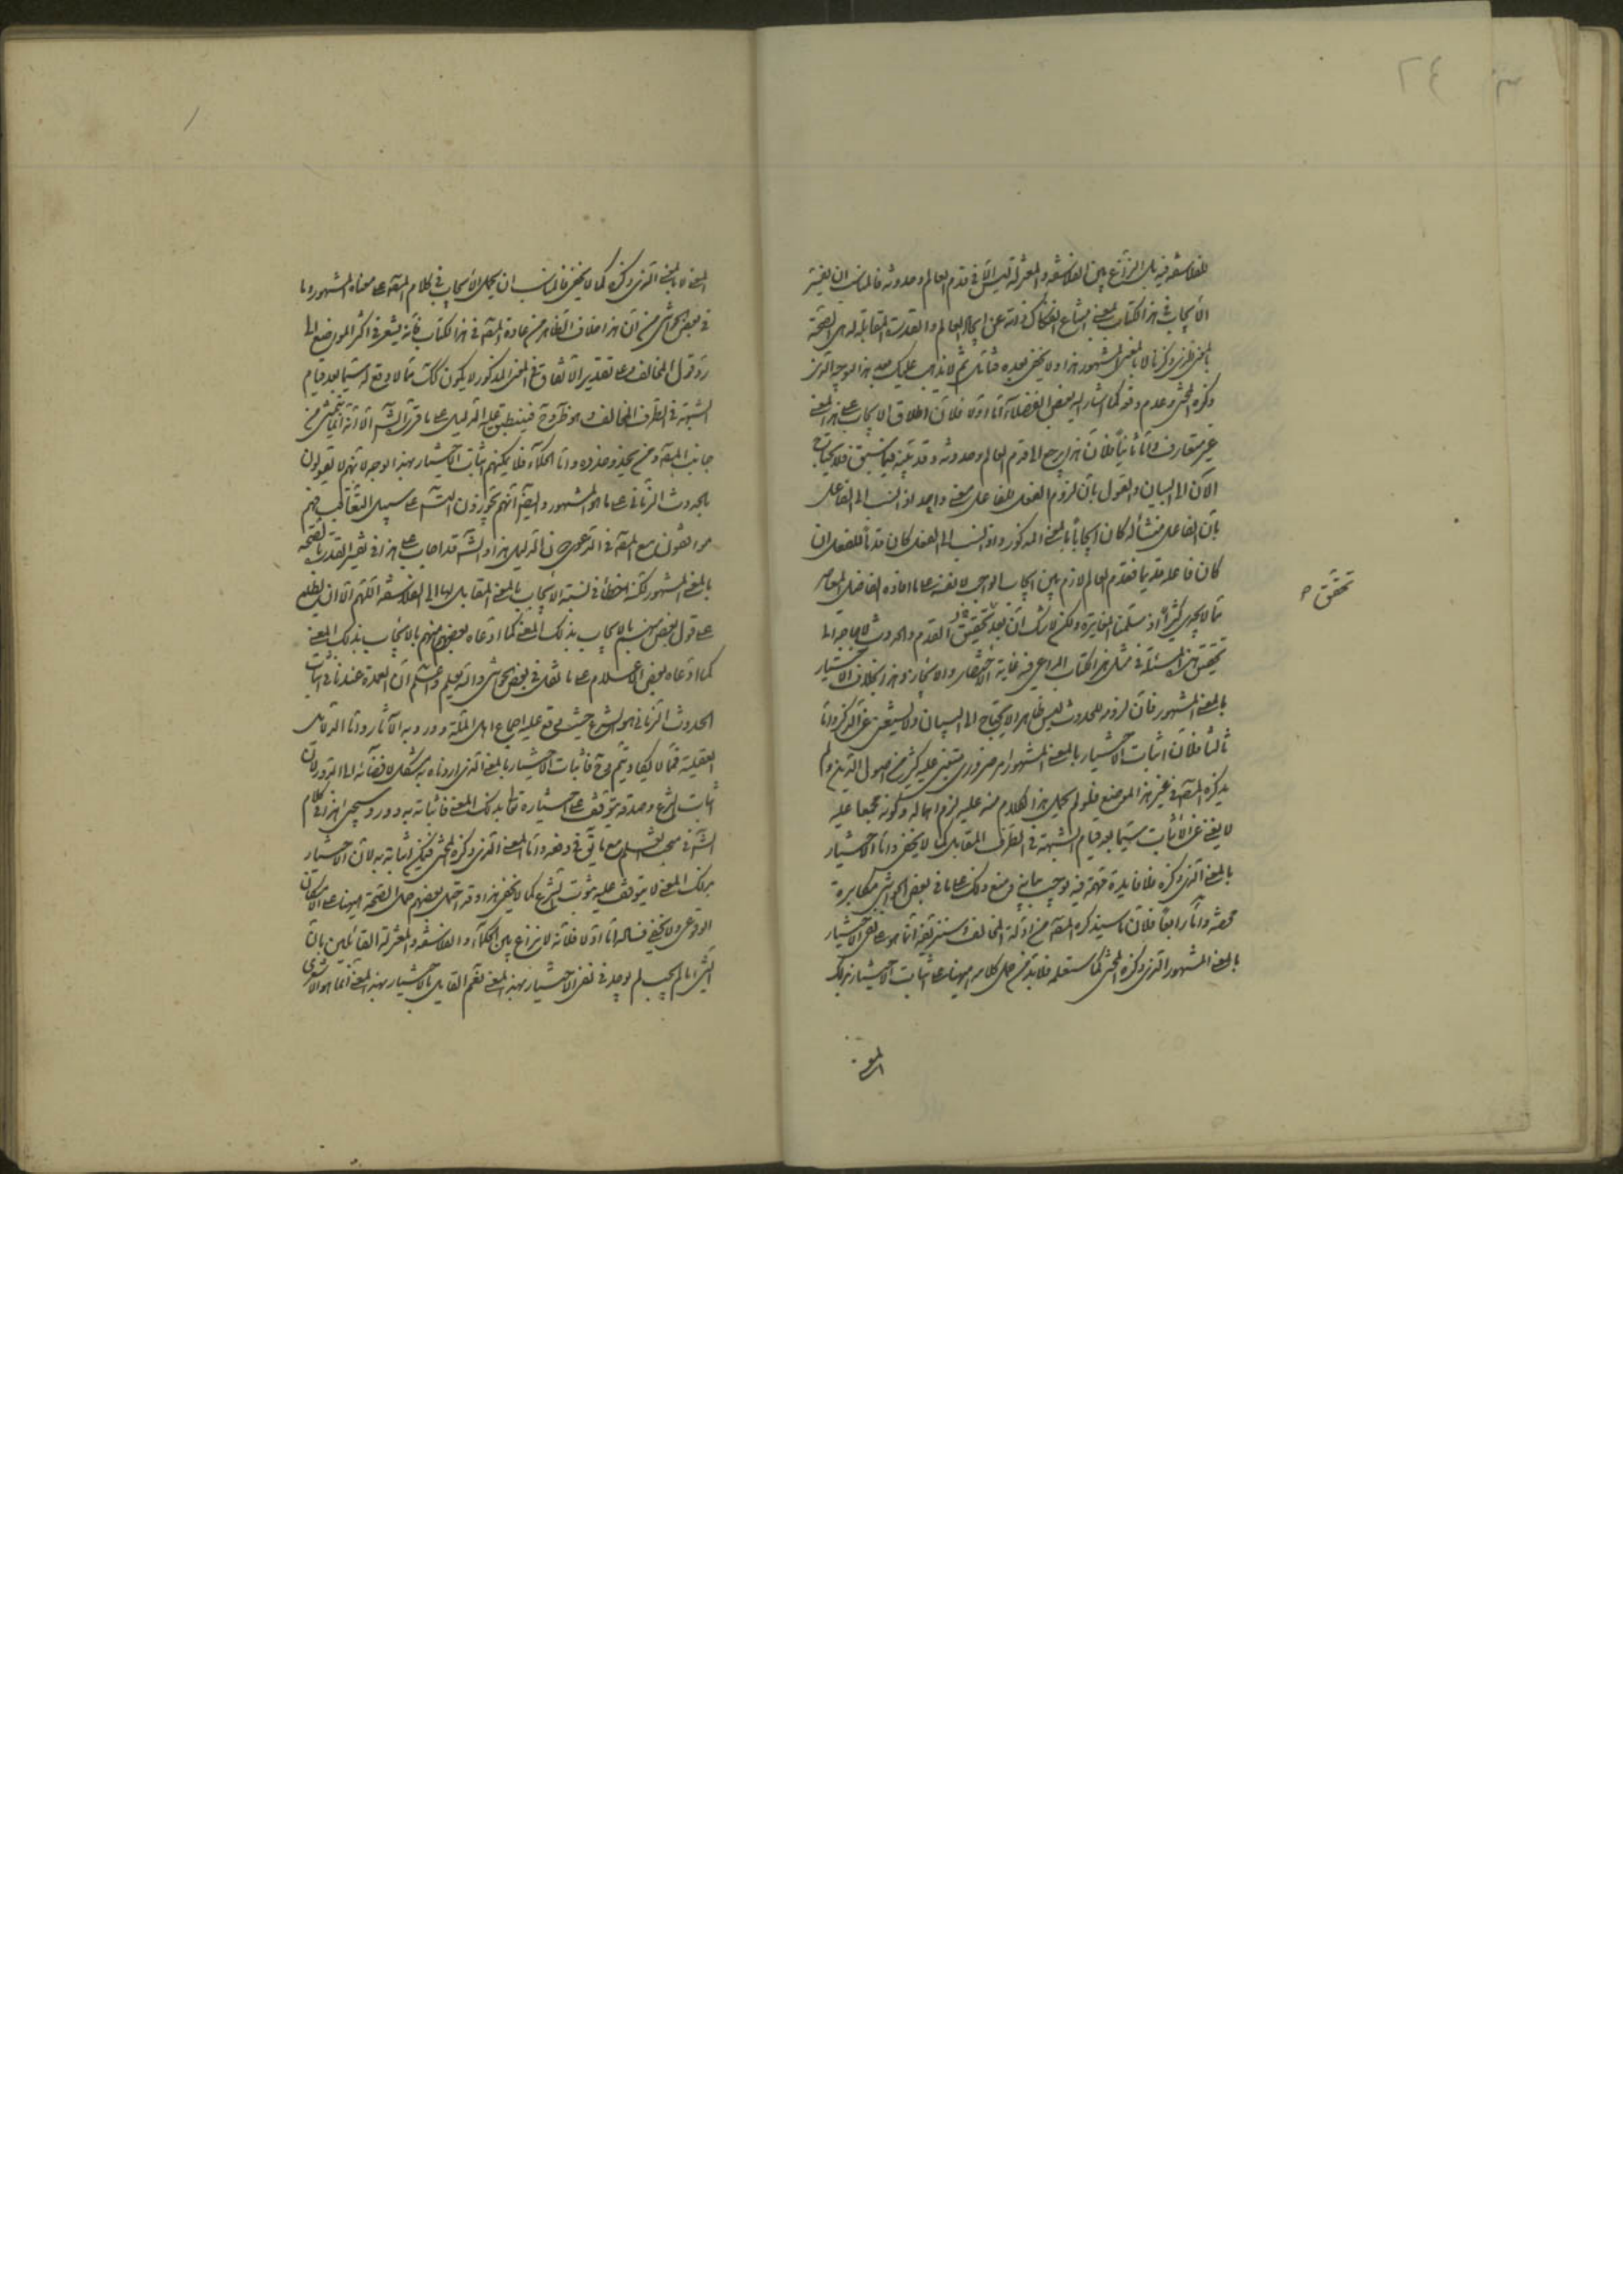 ٢٤
للفلاسفة فيه بل النزاع بين الفلاسفة والمعتزلة ليس الا في قدم العالم وحدوثه فالمناسب ان يفسر
الايجاب في هذا الكتاب بمعنى امتناع انفكاك ذاته عن ايجاد العالم والقدرة المقابلة له هي الصحة
بالمعنى الذي ذكرنا لا بالمعنى المشهور هذا ولا يخفى بعده فتأمل ثم لا يذهب عليك ان هذا الوجه الذي
ذكره المحشي وعدم وقوعه كما اشار اليه بعض الفضلاء اما اولا فلان اطلاق الايجاب على هذا المعنى
غير متعارف واما ثانيا فلان هذا يرجع الى قدم العالم وحدوثه وقد بينه فيما سبق فلا يحتاج
الآن الى البيان والقول بان لزوم الفعل للفاعل معنى واحد اذا نسب الى الفاعل
بان الفاعل منشأ له كان ايجابا بالمعنى المذكور واذا نسب الى الفعل كان قدما للفعل ان
كان فاعله قديما فقدم العالم لازم بين ايجاب الواجب لا نفسه على ما افاده الفاضل المعاصر
مما لا يجدي كثيرا اذ سلمنا المغايرة ولكن لا شك ان بعد تحقيق القدم والحدوث لا حاجة الى
تحقيق هذه المسئلة في مثل هذا الكتاب المراعى فيه غاية الاختصار والايجاز وهذا بخلاف الاختيار
بالمعنى المشهور فان لزومه للحدوث ليس ظاهرا لا يحتاج الى البيان ولا يستغنى عن الذكر واما
ثالثا فلان اثبات الاختيار بالمعنى المشهور امر ضروري يبتني عليه كثير من اصول الدين ولم
يذكره المصنف في غير هذا الموضع فلو لم يحمل هذا الكلام منه عليه لزم اهماله وكونه مجمعا عليه
لا يغني عن الاثبات سيما بعد قيام الشبهة في الطرف المقابل كما لا يخفى واما الاختيار
بالمعنى الذي ذكره فلا فائدة مهمة فيه توجب بيانه ومنع ذلك على ما في بعض الحواشي مكابرة
محضة واما رابعا فلان ما سيذكره المصنف من ادلة المخالف وسنزيفه انما هو على نفي الاختيار
بالمعنى المشهور الذي ذكره المحشي كما ستعلمه فلا بد من حمل كلامه ههنا على اثبات الاختيار بذلك
المعنى
تحقق
المعنى لا بالمعنى الذي ذكره كما لا يخفى فالمناسب ان يحمل الايجاب في كلام المصنف على معناه المشهور وما
في بعض الحواشي من ان هذا خلاف الظاهر من عادة المصنف في هذا الكتاب فانه يشير في اكثر المواضع الى
رد قول المخالف وعلى تقدير الاتفاق على المعنى المذكور لا يكون كذلك مما لا وقع له سيما بعد قيام
الشبهة في الطرف المخالف وهو ظ وح فينطبق عليه الدليل على ما قرره الشارح الا انه انما يتمشى من
جانب المصنف ومن يحذو حذوه واما الحكماء فلا يمكنهم اثبات الاختيار بهذا الوجه لانهم لا يقولون
بالحدوث الزماني على ما هو المشهور وايضا انهم يجوزون التسلسل على سبيل التعاقب فهم
موافقون مع المصنف في الدعوى دون الدليل هذا والشارح قد اصاب على هذا في تفسير القدرة بالصحة
بالمعنى المشهور لكنه اخطأ في نسبة الايجاب بالمعنى المقابل لها الى الفلاسفة اللهم الا ان يطلع
على قول بعض منهم بالايجاب بذلك المعنى كما ادعاه بعضهم منهم بالايجاب بذلك المعنى
كما ادعاه بعض الاعلام على ما نقل في بعض الحواشي والله يعلم واعلم ان العمدة عندنا في اثبات
الحدوث الزماني هو الشرع حيث وقع عليه اجماع اهل الملة وورد به الآثار واما الدلائل
العقلية فمما لا يكاد يتم وح فاثبات الاختيار بالمعنى الذي اردناه به مشكل لافضائه الى الدور لان
اثبات الشرع وصدقه يتوقف على اختياره تعالى بذلك المعنى فاثباته به دور وسيجئ هذا في كلام
الشارح في مبحث العلم مع ما يقال في دفعه واما المعنى الذي ذكره المحشي فيمكن اثباته به لان الاختيار
بذلك المعنى لا يتوقف عليه ثبوت الشرع كما لا يخفى هذا وقد احتمل بعضهم حمل الصحة ههنا على الامكان
الوقوعي ولا يخفى فساده اما اولا فلانه لا نزاع بين الحكماء والفلاسفة والمعتزلة القائلين بان
الشئ ما لم يجب لم يوجد في نفي الاختيار بهذا المعنى نعم القائل بالاختيار بهذا المعنى انما هو الاشعري